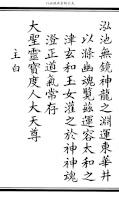 泓池無鏡神龍之淵運東華井
以滌幽魂覽茲運容太和之
津玄和玉女灌之於神神魂
澄正道氣常存
大聖靈寶度人大天尊
主白